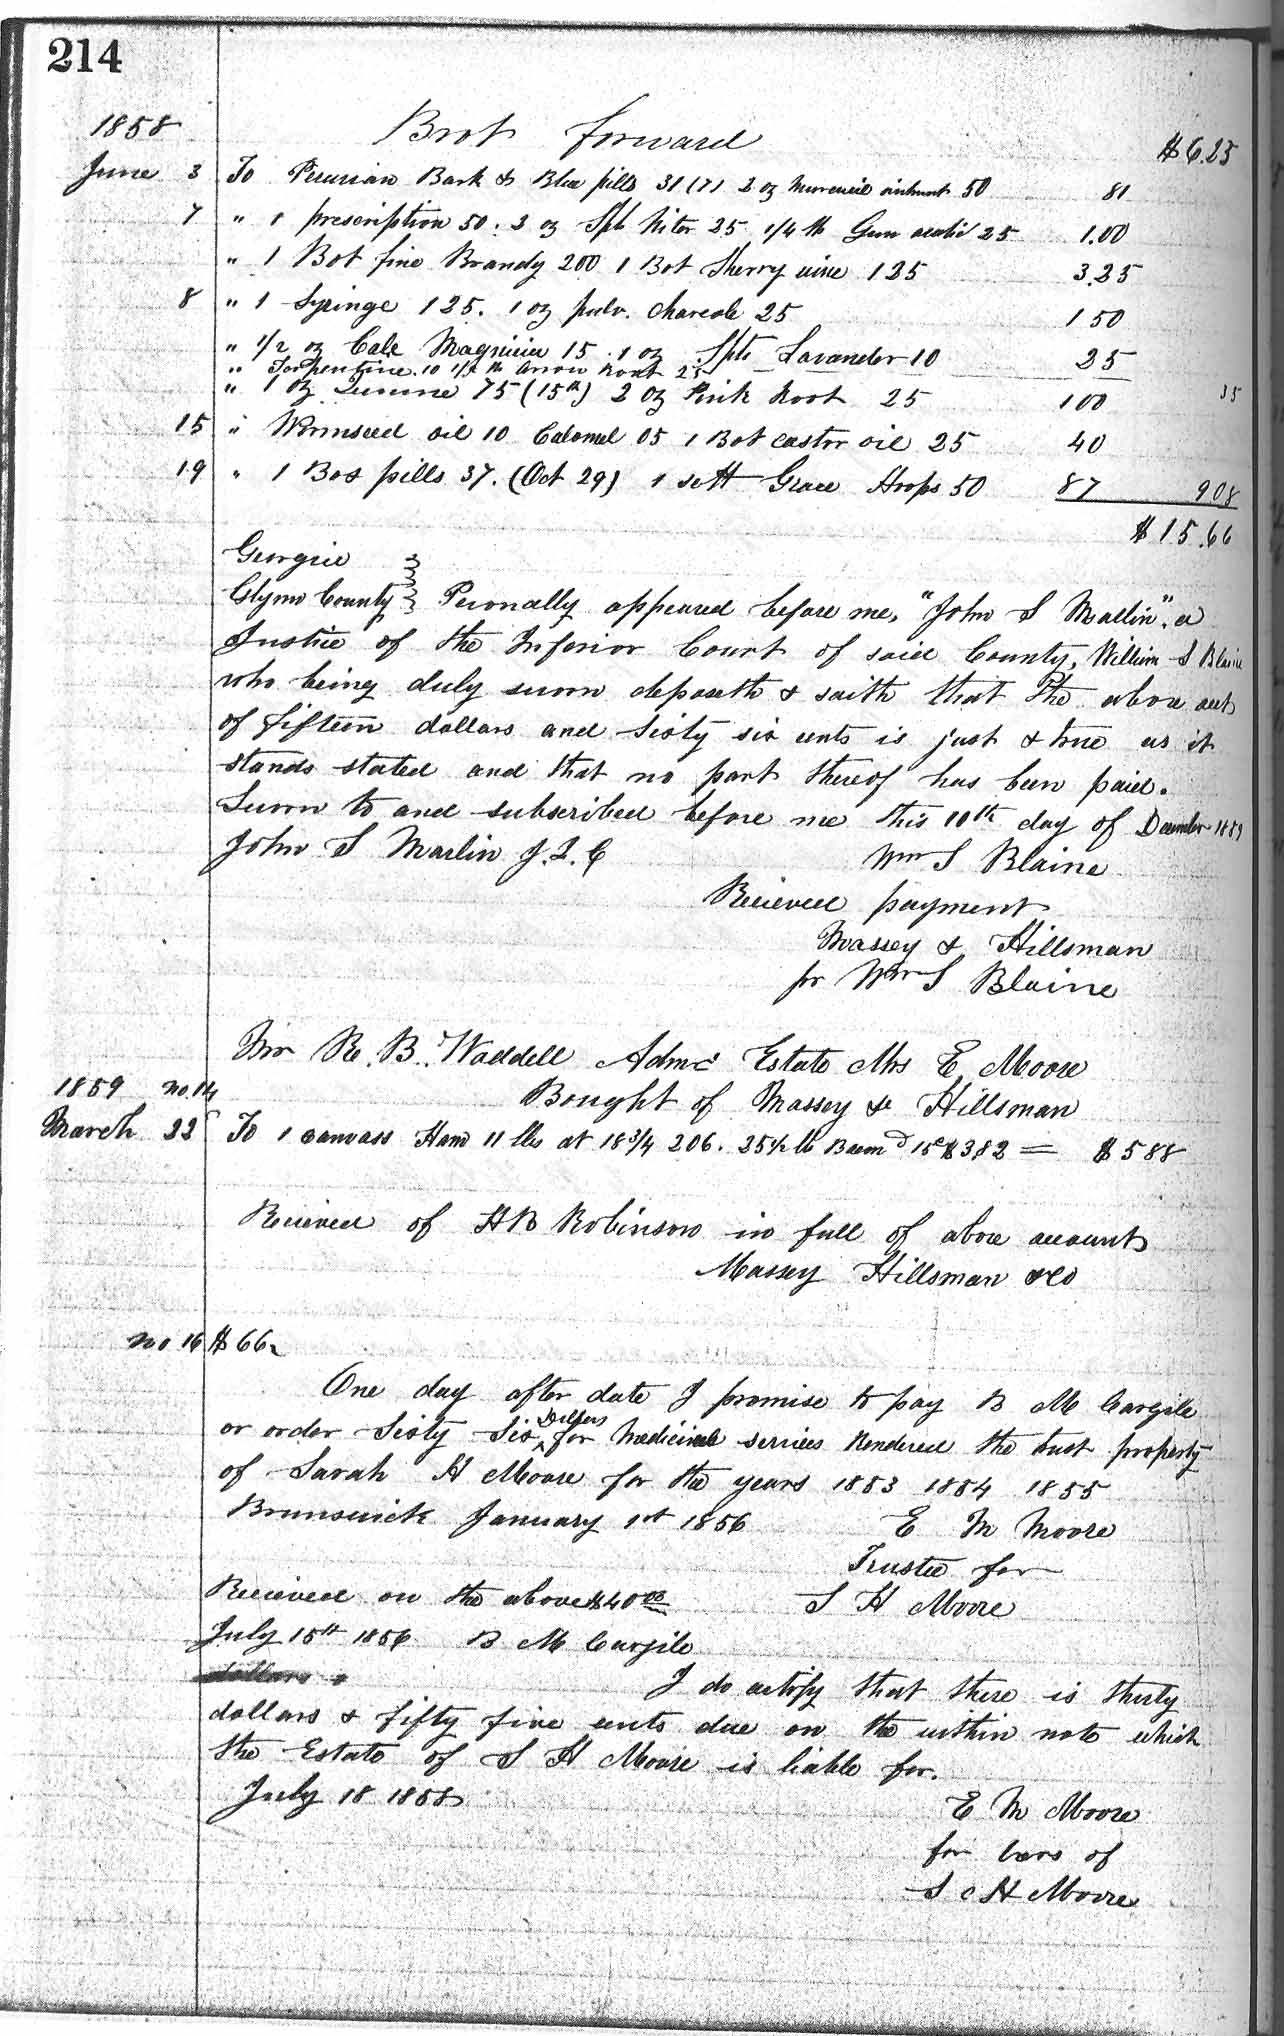 214
1858 Brot forward $6.23
June 3 To Peruvian Bark & Blue pills 31 (7) 2 oz ointment 50 81
7 " 1 prescription 50. 3 oz Spts Niter 25 1/4 lb Gum 25 1.00
" 1 Bot fine Brandy 200 1 Bot Sherry wine 125 3.25
8 " 1 Syringe 125. 1 oz pulv. Charcole 25 1 50
" 1/2 oz Cale Magnicia 15. 1 oz Spts Lavander 10 25
" Torpentine. 10 1/2 lb Arrow Root 25 35
" 1 oz Quinine 75 (15th) 2 oz Pink Root 25 100
15 " Wormseed oil 10 Calomel 05 1 Bot castor oil 25 40
19 " 1 Box pills 37. (Oct 29) 1 sett Grace Hoops 50 87 908
$15.66
Georgia
Glynn County Personally appeared before me, "John S Marlin". a
Justice of the Inferior Court of said County, William S Blaine
who being duly sworn deposeth & saith that The above acct
of fifteen dollars and sixty six cents is just & true as it
stands stated and that no part thereof has been paid.
Sworn to and subscribed before me this 10th day of December 1859
John S Marlin J.I.C Wm S Blaine
Recieved payment
Massey & Hillsman
pr Wm S Blaine
Mr R. B. Waddell Admr Estate Mrs E Moore
1859 no. 14 Bought of Massey & Hillsman
March 22 To 1 canvass Ham 11 lbs at 18 3/4 206. 25 1/2 lb Bacon 15c $382 = $588
Recieved of HB Robinson in full of above account
Massey Hillsman & Co
no 16 $66
One day after date I promise to pay B M Cargile
or order Sixty Six Dollars for Medicinal services Rendered the trust property
of Sarah H Moore for the years 1853 1854 1855
Brunswick January 1st 1856 E M Moore
Trustee for
Recieved on the above $40 00 S H Moore
July 15th 1856 B M Cargile
dollars I do certify that there is thirty
dollars & fifty five cents due on the within note which
the Estate of S H Moore is liable for.
July 18 1858 E M Moore
for of
S H Moore